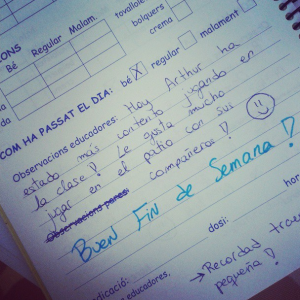 tovallole
bolquers
crema
IONS
Bé Regular Malam.
da
COM HA PASSAT EL DIA: bé X regular malament
Observacions educadores: Hoy Arthur ha
estado más contento jugando en
la clase! Le gusta mucho
jugar en el patio con sus
compañeros!
Observacions pares:
Buen Fin de Semana!
dosi:
hor
educadores.
→ Recordad traer
pequeña!